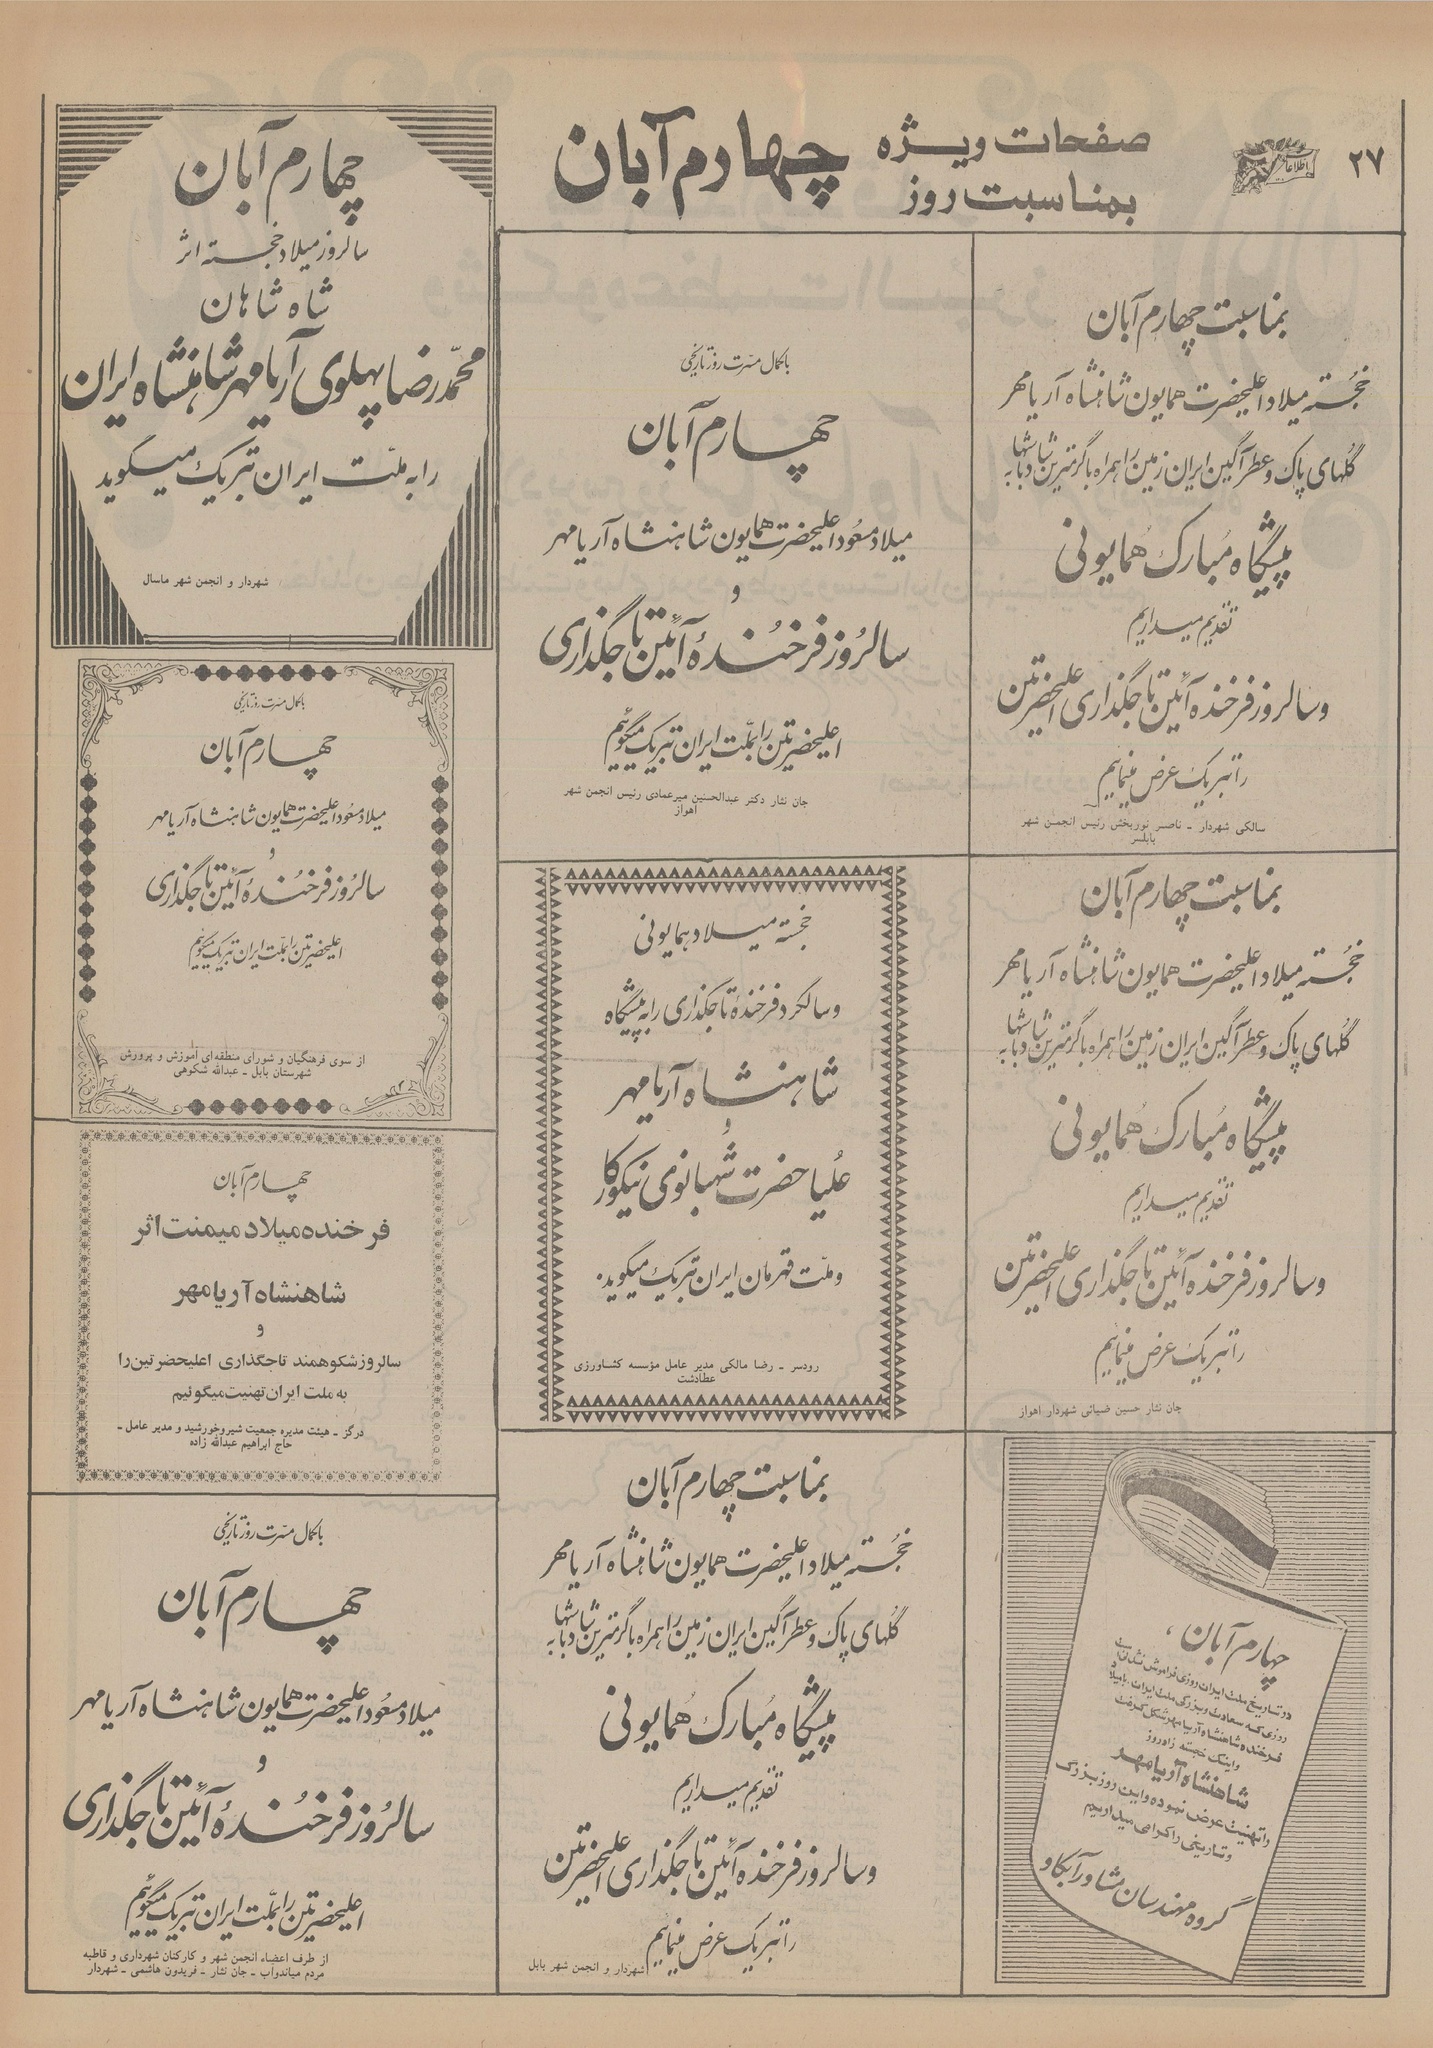 ۲۷
اطلاعات
صفحات ویژه
بمناسبت روز
چهارم آبان
بمناسبت چهارم آبان
خجسته میلاد اعلیحضرت همایون شاهنشاه آریامهر
گلهای پاک و عطرآگین ایران زمین را همراه با گرمترین شادباشها به
پیشگاه مبارک همایونی
تقدیم میداریم
و سالروز فرخنده آئین تاجگذاری اعلیحضرتین
را تبریک عرض مینمائیم
سالکی شهردار - ناصر نوربخش رئیس انجمن شهر
بابلسر
باکمال مسرت روز تاریخی
چهارم آبان
میلاد مسعود اعلیحضرت همایون شاهنشاه آریامهر
و
سالروز فرخندهٔ آئین تاجگذاری
اعلیحضرتین را بملت ایران تبریک میگوئیم
جان نثار دکتر عبدالحسین میرعمادی رئیس انجمن شهر
اهواز
چهارم آبان
سالروز میلاد خجسته اثر
شاه شاهان
محمدرضا پهلوی آریامهر شاهنشاه ایران
را به ملت ایران تبریک میگوید
شهردار و انجمن شهر ماسال
باکمال مسرت روز تاریخی
چهارم آبان
میلاد مسعود اعلیحضرت همایون شاهنشاه آریامهر
و
سالروز فرخندهٔ آئین تاجگذاری
اعلیحضرتین را بملت ایران تبریک میگوئیم
از سوی فرهنگیان و شورای منطقه‌ای آموزش و پرورش
شهرستان بابل - عبدالله شکوهی
بمناسبت چهارم آبان
خجسته میلاد اعلیحضرت همایون شاهنشاه آریامهر
گلهای پاک و عطرآگین ایران زمین را همراه با گرمترین شادباشها به
پیشگاه مبارک همایونی
تقدیم میداریم
و سالروز فرخنده آئین تاجگذاری اعلیحضرتین
را تبریک عرض مینمائیم
جان نثار حسین ضیائی شهردار اهواز
خجسته میلاد همایونی
و سالگرد فرخندهٔ تاجگذاری را به پیشگاه
شاهنشاه آریامهر
و
علیاحضرت شهبانوی نیکوکار
و ملت قهرمان ایران تبریک میگوید.
رودسر - رضا مالکی مدیر عامل مؤسسه کشاورزی
عطادشت
چهارم آبان
فرخنده میلاد میمنت اثر
شاهنشاه آریامهر
و
سالروز شکوهمند تاجگذاری اعلیحضرتین را
به ملت ایران تهنیت میگوئیم
درگز - هیئت مدیره جمعیت شیروخورشید و مدیر عامل -
حاج ابراهیم عبدالله زاده
چهارم آبان،
در تاریخ ملت ایران روزی فراموش نشدنی است
روزی که سعادت و بزرگی ملت ایران، با میلاد
فرخنده شاهنشاه آریامهر شکل گرفت
و اینک خجسته زادروز
شاهنشاه آریامهر
را تهنیت عرض نموده و این روز بزرگ
و تاریخی را گرامی میداریم
گروه مهندسان مشاور آبکاو
بمناسبت چهارم آبان
خجسته میلاد اعلیحضرت همایون شاهنشاه آریامهر
گلهای پاک و عطرآگین ایران زمین را همراه با گرمترین شادباشها به
پیشگاه مبارک همایونی
تقدیم میداریم
و سالروز فرخنده آئین تاجگذاری اعلیحضرتین
را تبریک عرض مینمائیم
شهردار و انجمن شهر بابل
باکمال مسرت روز تاریخی
چهارم آبان
میلاد مسعود اعلیحضرت همایون شاهنشاه آریامهر
و
سالروز فرخندهٔ آئین تاجگذاری
اعلیحضرتین را بملت ایران تبریک میگوئیم
از طرف اعضاء انجمن شهر و کارکنان شهرداری و قاطبه
مردم میاندواب - جان نثار - فریدون هاشمی - شهردار